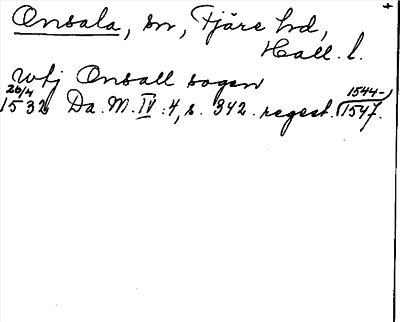 Onsala, sn, Fjäre hd,
Hall. l.
wtj Onsall sogen
26/4 1532 Da. M. IV :4, s. 342. regest. 1544-1547.